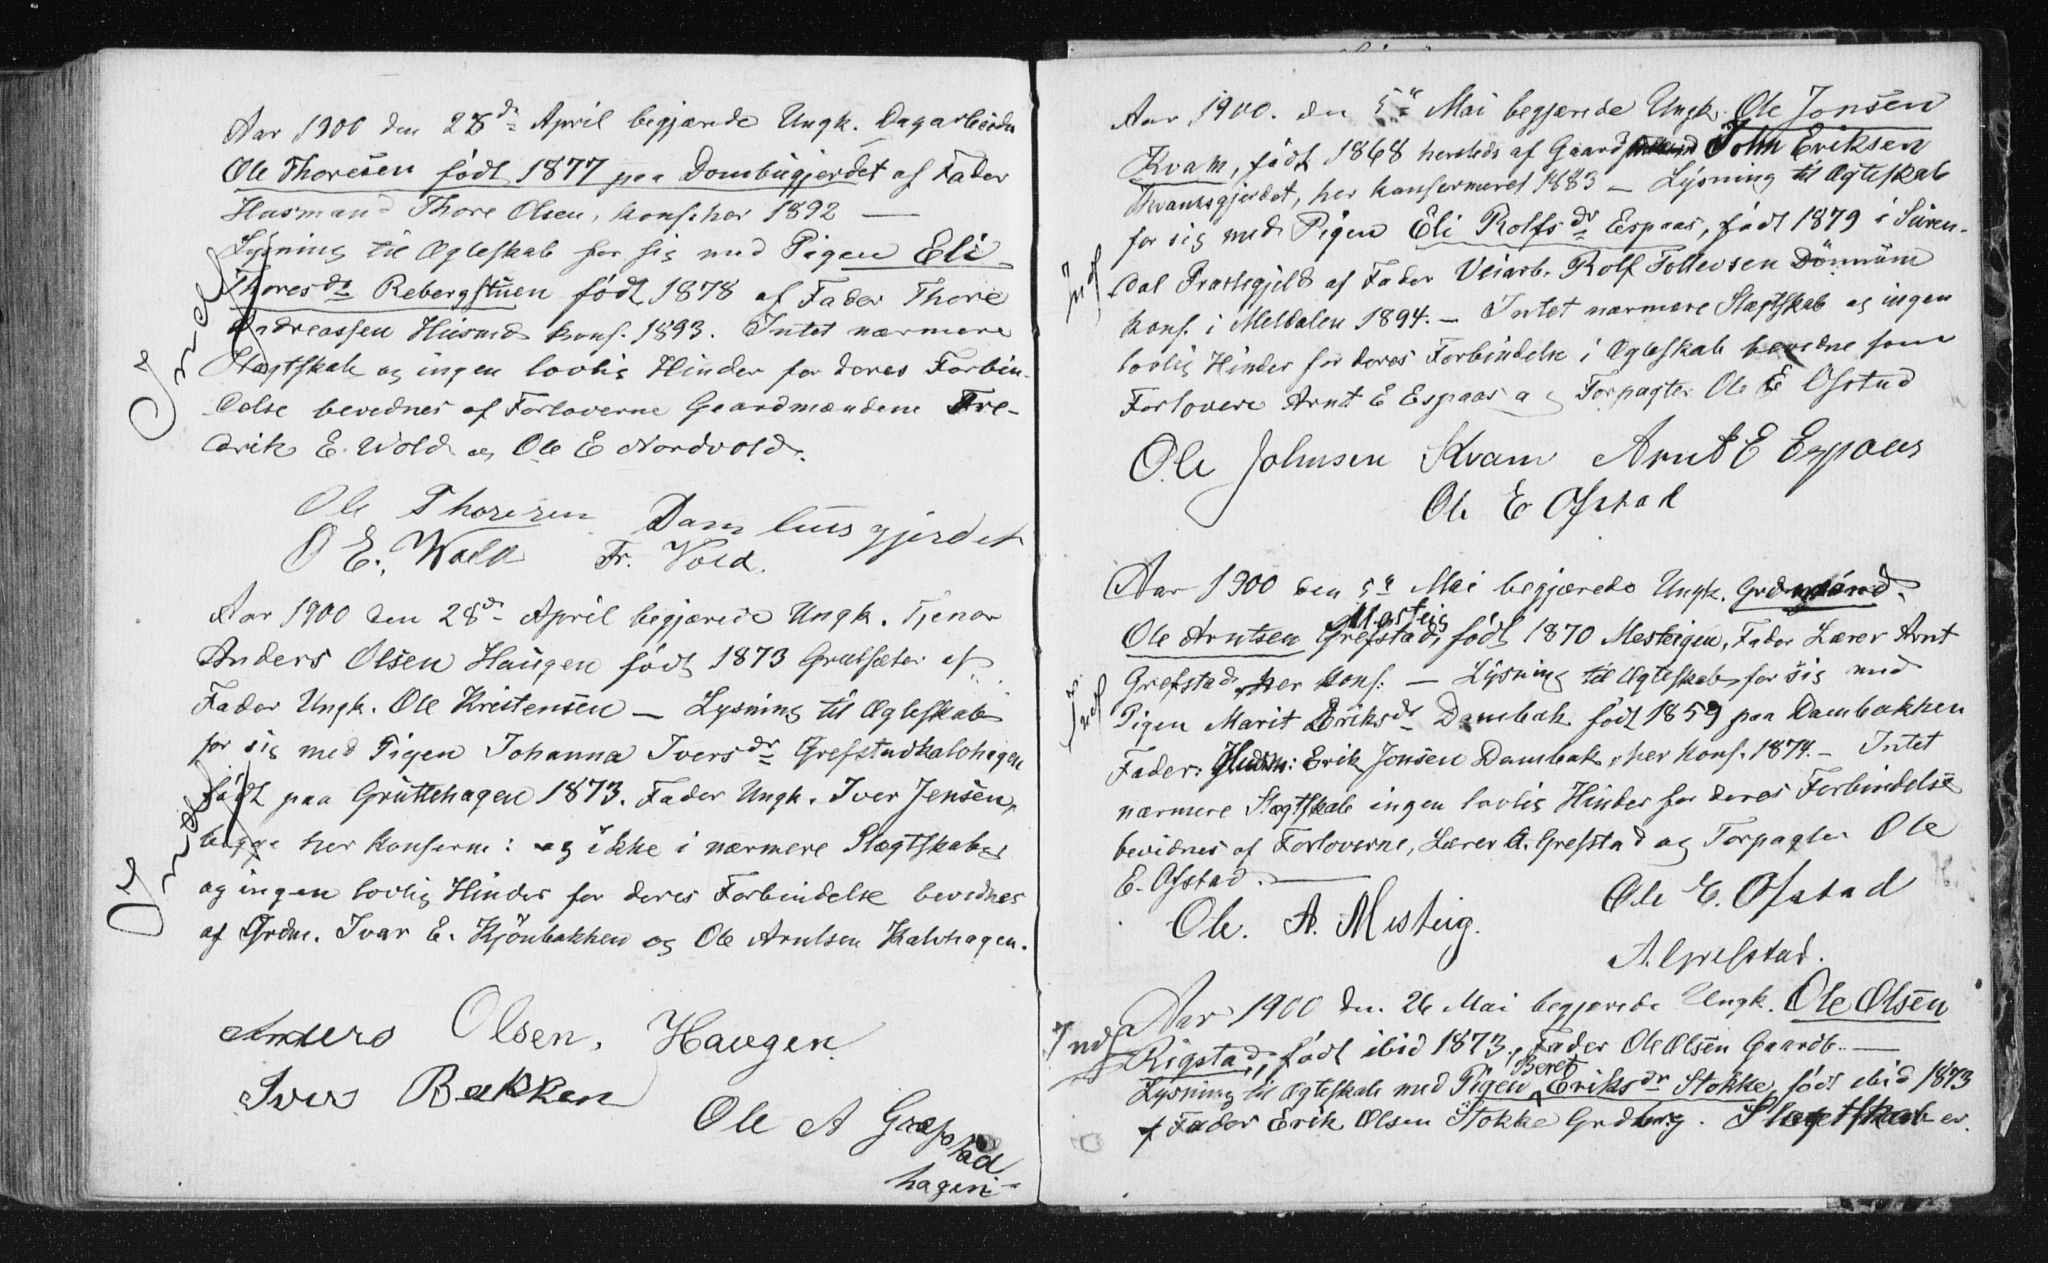 Aar 1900 den 28de April begjærede Ungk. Dagarbeider
Ole Thoresen født 1877 paa Dombugjerdet af Fader
Husmand Thore Olsen, konf. her 1892 —
Lysning til Ægteskab for sig med Pigen Eli
Thoresdr Rebergstuen født 1878 af Fader Thore
Andreassen Husmd konf. 1893. Intet nærmere
Slægtskab og ingen lovlig Hinder for deres Forbin-
delse bevidnes af Forloverne Gaardmændene Fre-
drik E. Wold og Ole E Nordvold.
Indf
Ole Thoresen Dambusgjerdet
O E. Wold Fr. Vold.
Aar 1900 den 28de April begjærede Ungk. Tjener
Anders Olsen Haugen født 1873 Grutseter af
Fader Ungk. Ole Kristensen — Lysning til Ægteskab
for sig med Pigen Johanna Iversdr Grefstadkalvhagen
født paa Gruttehagen 1873. Fader Ungk. Iver Jensen,
begge her konferm: og ikke i nærmere Slægtskab
og ingen lovlig Hinder for deres Forbindelse bevidnes
af Grdm. Ivar E. Kjönbakken og Ole Arntsen Kalvhagen.
Indf
Anders Olsen, Haugen
Iver Bakken
Ole A Grefstad
hagen
Aar 1900. den 5te Mai begjærede Ungk. Ole Jonsen
Kvam, født 1868 hersteds af Gaard John Eriksen
Kvamsgjerdet, her konfermeret 1883 — Lysning til Ægteskab
for sig med Pigen Eli Rolfsdr Espaas, født 1879 i Suren-
dal Præstegjeld af Fader Veiarb. Rolf Follevsen Dönnüm
konf. i Meldalen 1894. — Intet nærmere Slægtskab og ingen
lovlig Hinder for deres Forbindelse i Ægteskab bevidne som
Forlovere Arnt E Espaas og Forpagter Ole E Ofstad
Indf
Ole Johnsen Kvam Arnt E Espaas
Ole E Ofstad
Aar 1900 den 5te Mai begjærede Ungk. Grdmand.
Mesteig
Ole Arntsen Grefstad, født 1870 Mesteigen, Fader Lærer Arnt
Grefstad, her konf: — Lysning til Ægteskab for sig med
Pigen Marit Eriksdr Dambak født 1859 paa Dambakken
Fader: Husm: Erik Jonsen Dambak, her konf. 1874. — Intet
nærmere Slægtskab ingen lovlig Hinder for deres Forbindelse
bevidnes af Forloverne, Lærer A. Grefstad og Forpagter Ole
E. Ofstad. —
Indf
Ole. A. Mesteig. Ole E. Ofstad
A. Grefstad.
Aar 1900 den 26 Mai begjærede Ungk. Ole Olsen
Indf Rigstad, født ibid 1873, Fader Ole Olsen Gaardb. —
Beret
Lysning til Ægteskab med Pigen Eriksdr Stokke, født ibid 1873
af Fader Erik Olsen Stokke Grdbrg. Slægtskab er.